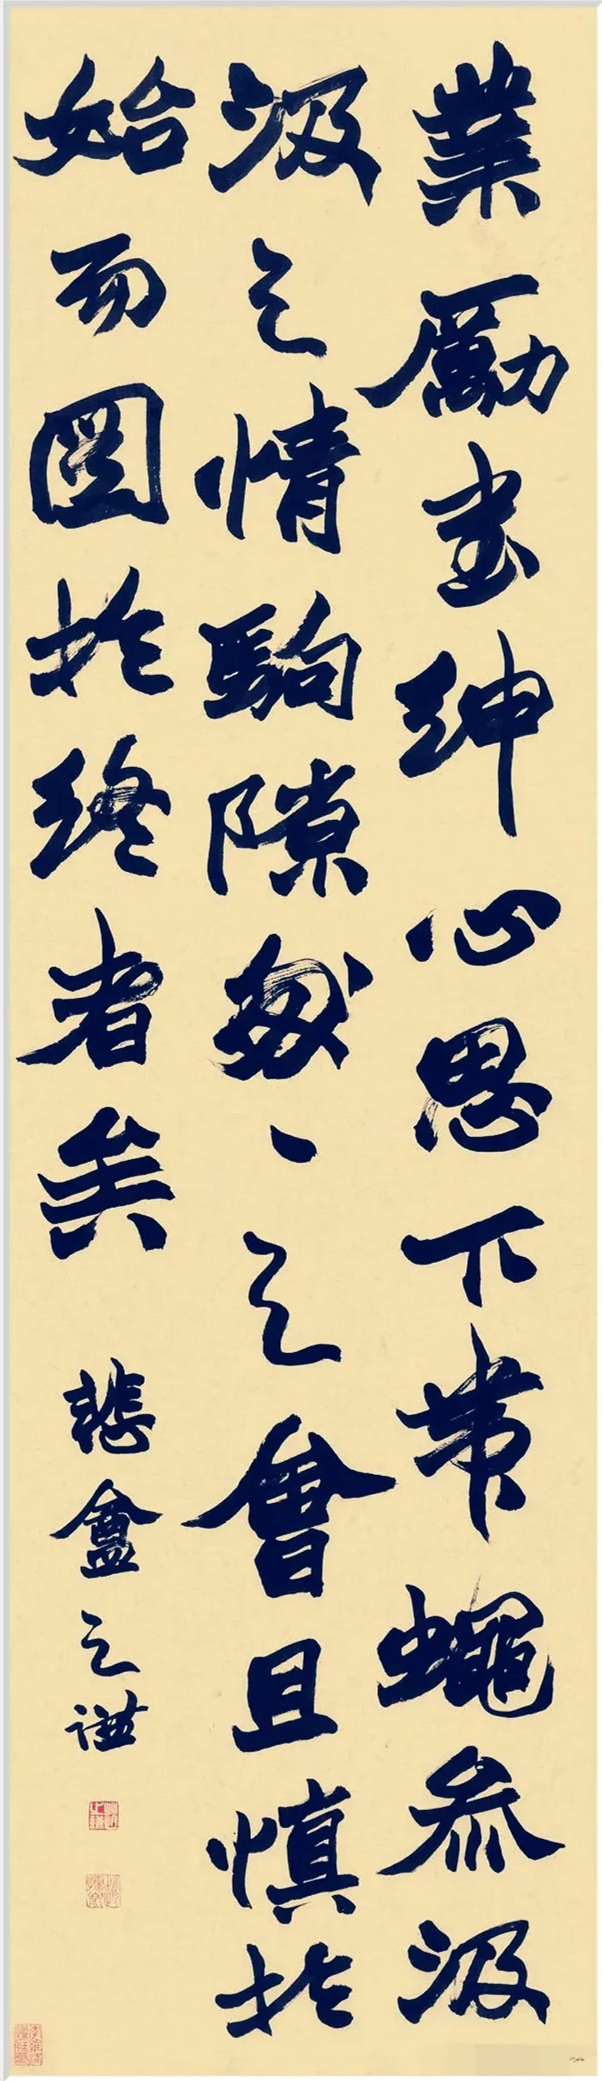 業勵書紳心思下帶蠅參汲
汲之情駒隙、之會且慎於
始而圖於終者矣
悲盦之謙